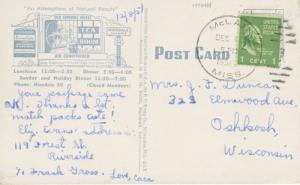 "An Atmosphere of Natural Beauty"
12/8/51
TEA
ROOM
AIR CONDITIONED
Luncheon 12:00—2:30 Dinner 5:00—7:30
Sunday and Holiday Dinner 12:00—7:30
Phone: Hinsdale (Closed Mondays)
Your package came
OK! Thanks a lot
match packs cute!
Eliz. Evans' address:
119 Forest St.
Riverside
% Frank Gross. Love, Cora
McLA
DEC
MISS.
1 CENT 1
POST CARD
Mrs. J. F. Duncan
323 Elmwood Ave.
Oshkosh,
Wisconsin